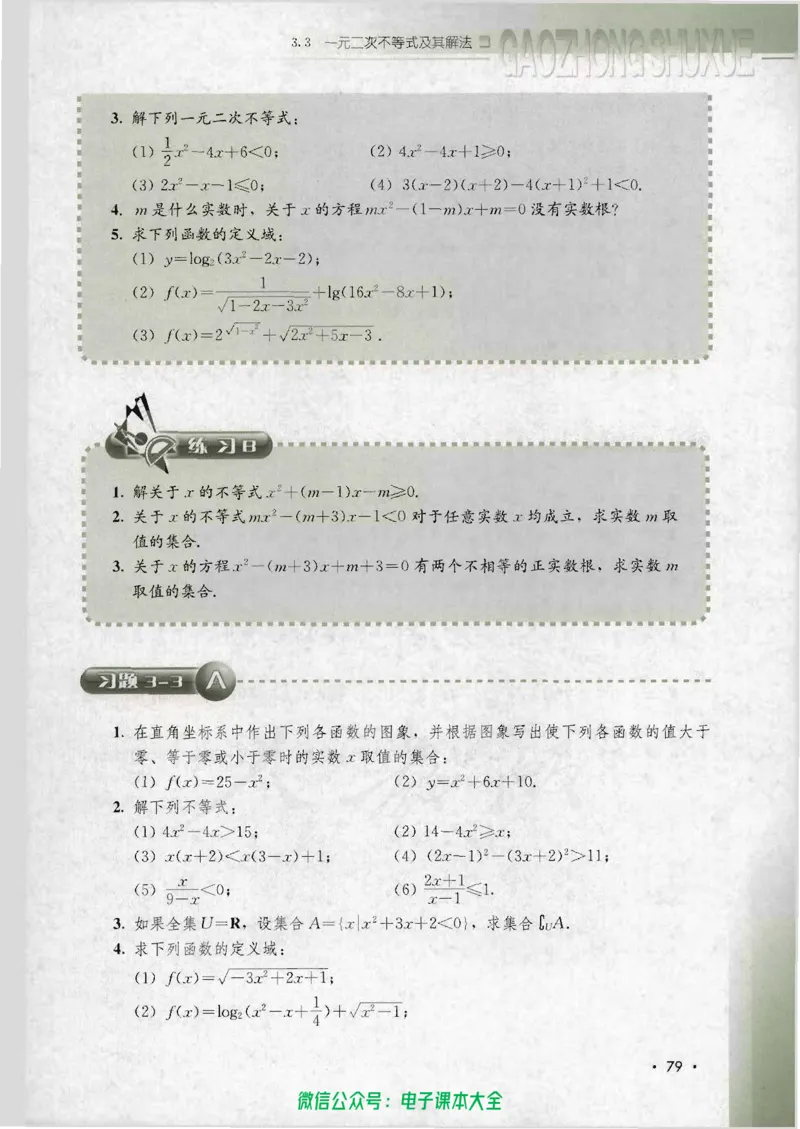 3.3 一元二次不等式及其解法
GAOZHONGSHUXUE
3. 解下列一元二次不等式:
(1) \frac{1}{2}x²-4x+6<0; (2) 4x²-4x+1≥0;
(3) 2x²-x-1≤0; (4) 3(x-2)(x+2)-4(x+1)²+1<0.
4. m是什么实数时,关于x的方程mx²-(1-m)x+m=0没有实数根?
5. 求下列函数的定义域:
(1) y=log₂(3x²-2x-2);
(2) f(x)=\frac{1}{\sqrt{1-2x-3x²}}+lg(16x²-8x+1);
(3) f(x)=2^{\sqrt{1-x²}}+\sqrt{2x²+5x-3}.
练习B
1. 解关于x的不等式x²+(m-1)x-m≥0.
2. 关于x的不等式mx²-(m+3)x-1<0对于任意实数x均成立,求实数m取
值的集合.
3. 关于x的方程x²-(m+3)x+m+3=0有两个不相等的正实数根,求实数m
取值的集合.
习题3-3 A
1. 在直角坐标系中作出下列各函数的图象,并根据图象写出使下列各函数的值大于
零、等于零或小于零时的实数x取值的集合:
(1) f(x)=25-x²; (2) y=x²+6x+10.
2. 解下列不等式:
(1) 4x²-4x>15; (2) 14-4x²≥x;
(3) x(x+2)<x(3-x)+1; (4) (2x-1)²-(3x+2)²>11;
(5) \frac{x}{9-x}<0; (6) \frac{2x+1}{x-1}≤1.
3. 如果全集U=R,设集合A={x|x²+3x+2<0},求集合∁_UA.
4. 求下列函数的定义域:
(1) f(x)=\sqrt{-3x²+2x+1};
(2) f(x)=log₂(x²-x+\frac{1}{4})+\sqrt{x²-1};
· 79 ·
微信公众号:电子课本大全